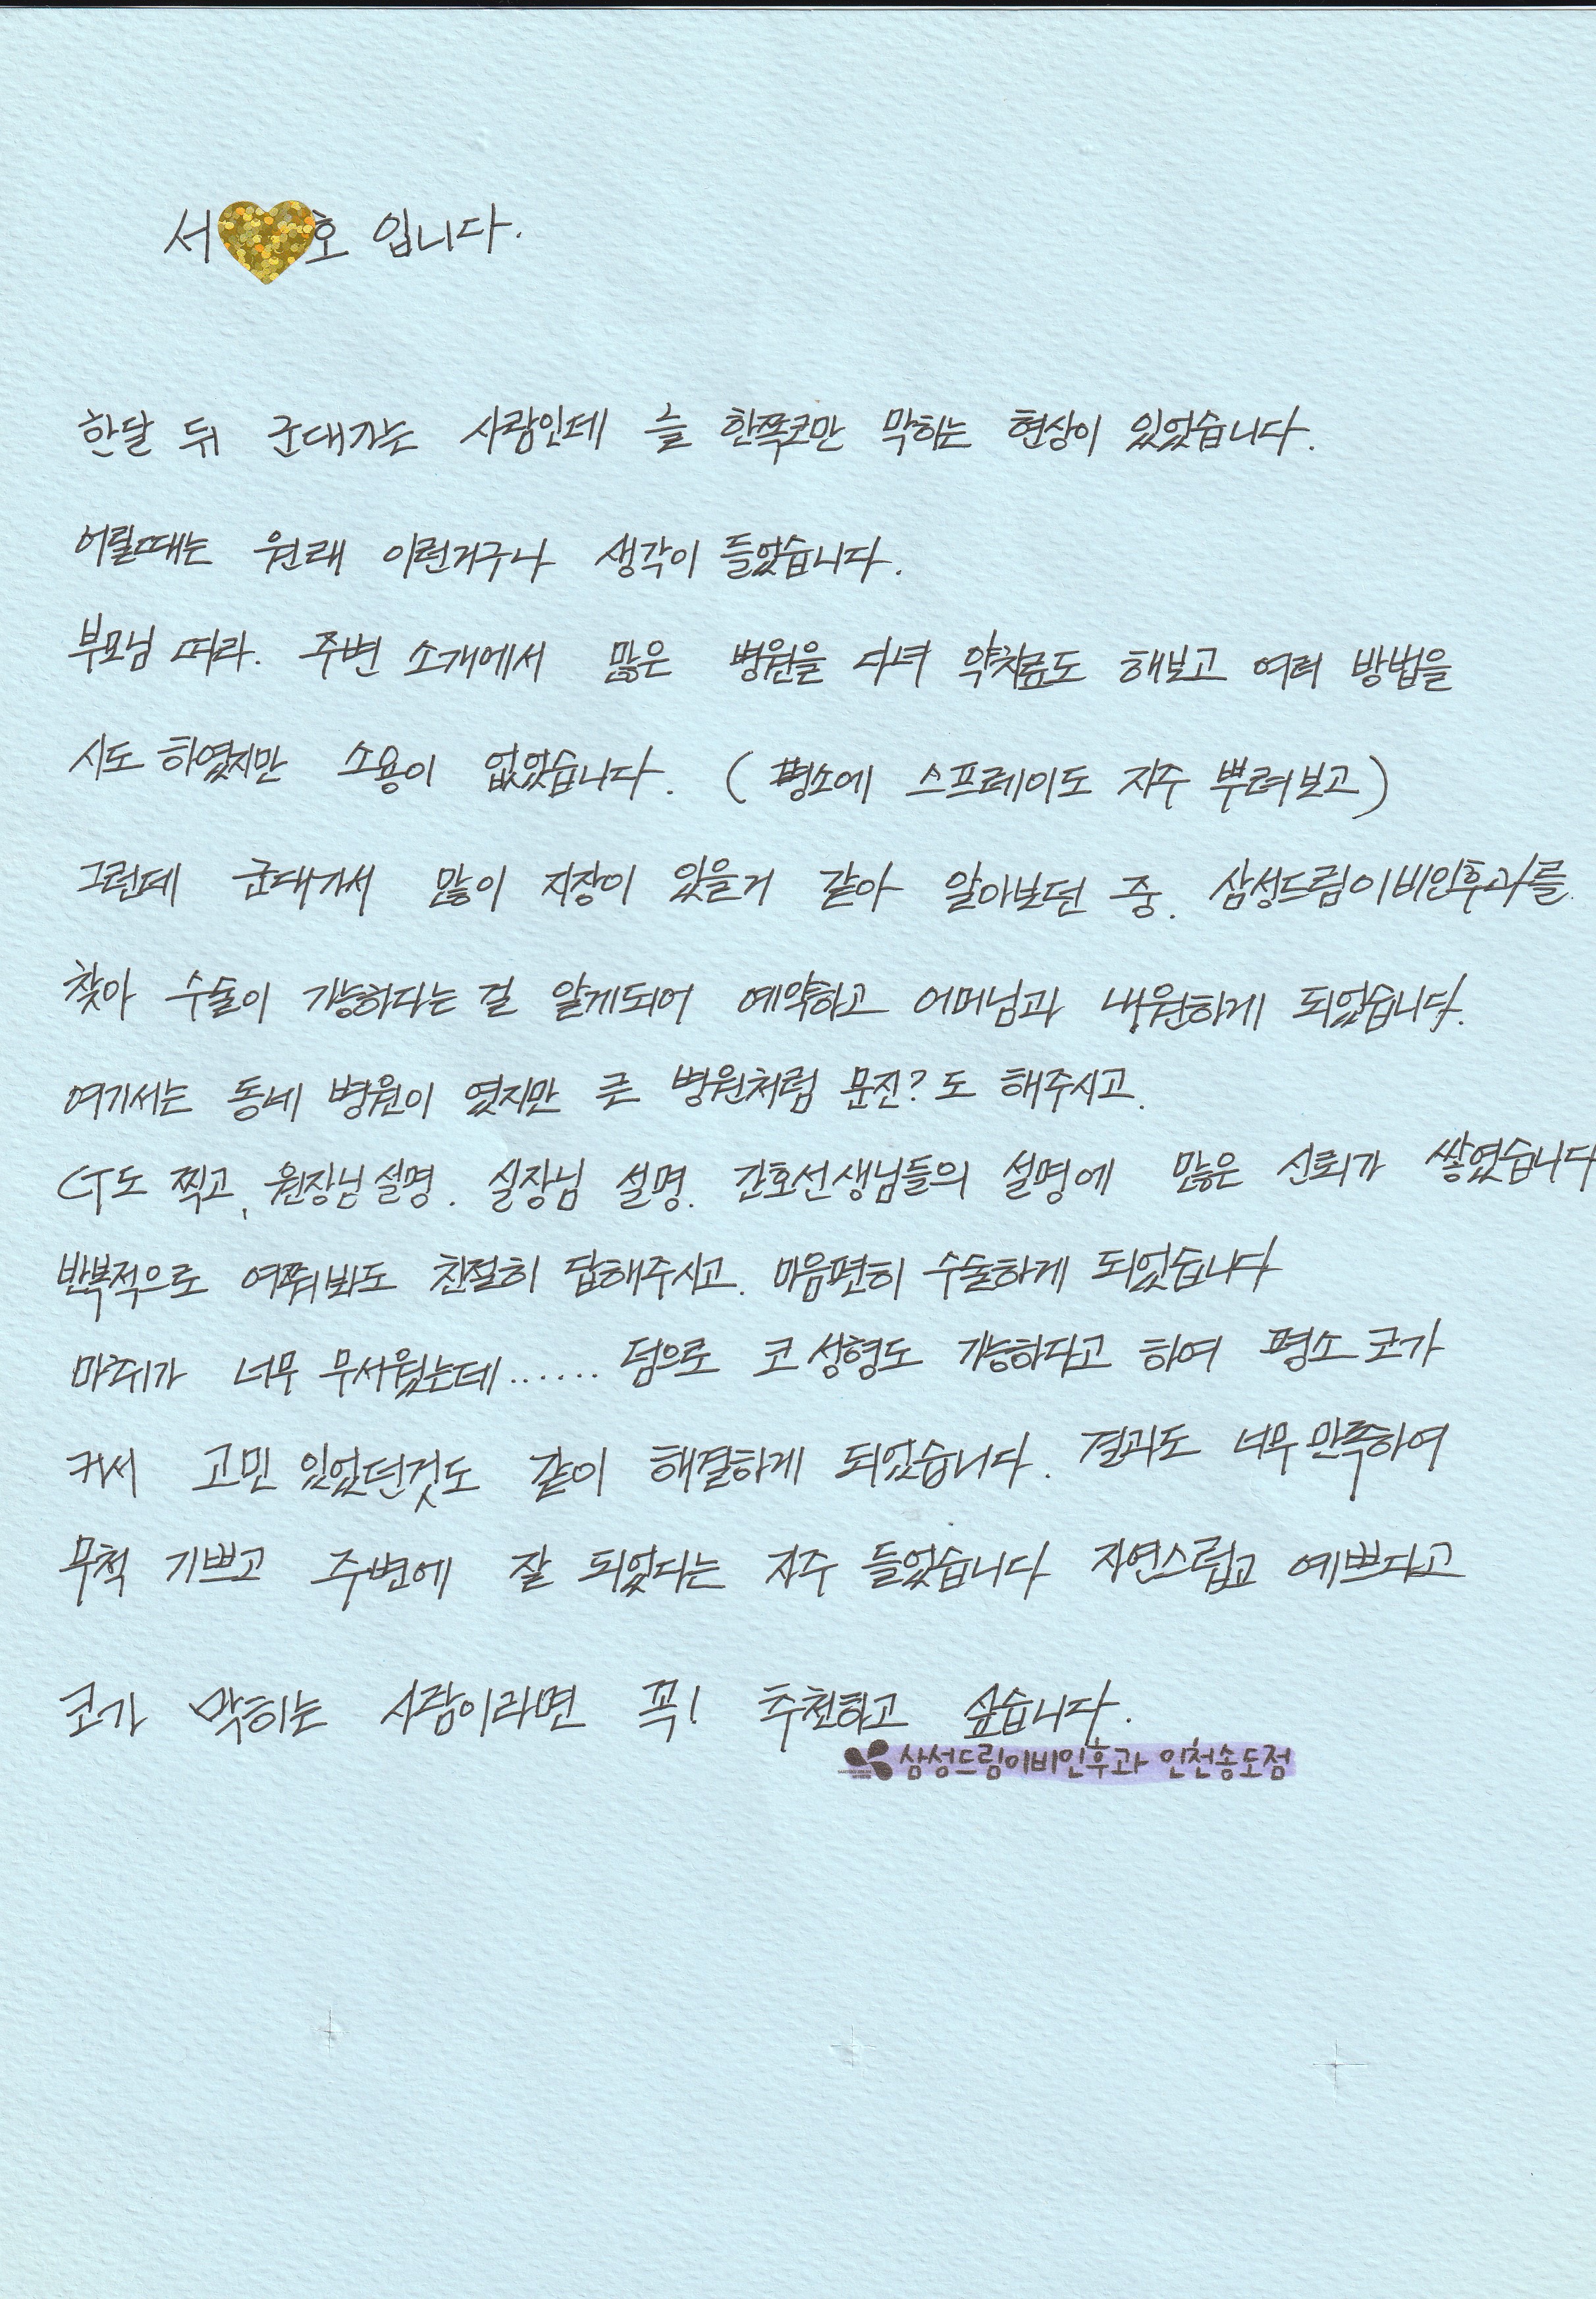 서 호 입니다.
한달 뒤 군대가는 사람인데 늘 한쪽코만 막히는 현상이 있었습니다.
어릴때는 원래 이런거구나 생각이 들었습니다.
부모님 따라. 주변 소개에서 많은 병원을 다녀 약치료도 해보고 여러 방법을
시도 하였지만 소용이 없었습니다. ( 평소에 스프레이도 자주 뿌려보고 )
그런데 군대가서 많이 지장이 있을거 같아 알아보던 중. 삼성드림이비인후과를.
찾아 수술이 가능하다는 걸 알게되어 예약하고 어머님과 내원하게 되었습니다.
여기서는 동네 병원이 였지만 큰 병원처럼 문진? 도 해주시고.
CT도 찍고, 원장님 설명. 실장님 설명. 간호선생님들의 설명에 많은 신뢰가 쌓였습니다
반복적으로 여쭤봐도 친절히 답해주시고. 마음편히 수술하게 되었습니다
마취가 너무 무서웠는데...... 덤으로 코 성형도 가능하다고 하여 평소 코가
커서 고민 있었던것도 같이 해결하게 되었습니다. 결과도 너무 만족하여
무척 기쁘고 주변에 잘 되었다는 자주 들었습니다 자연스럽고 예쁘다고
코가 막히는 사람이라면 꼭! 추천하고 싶습니다.
삼성드림이비인후과 인천송도점